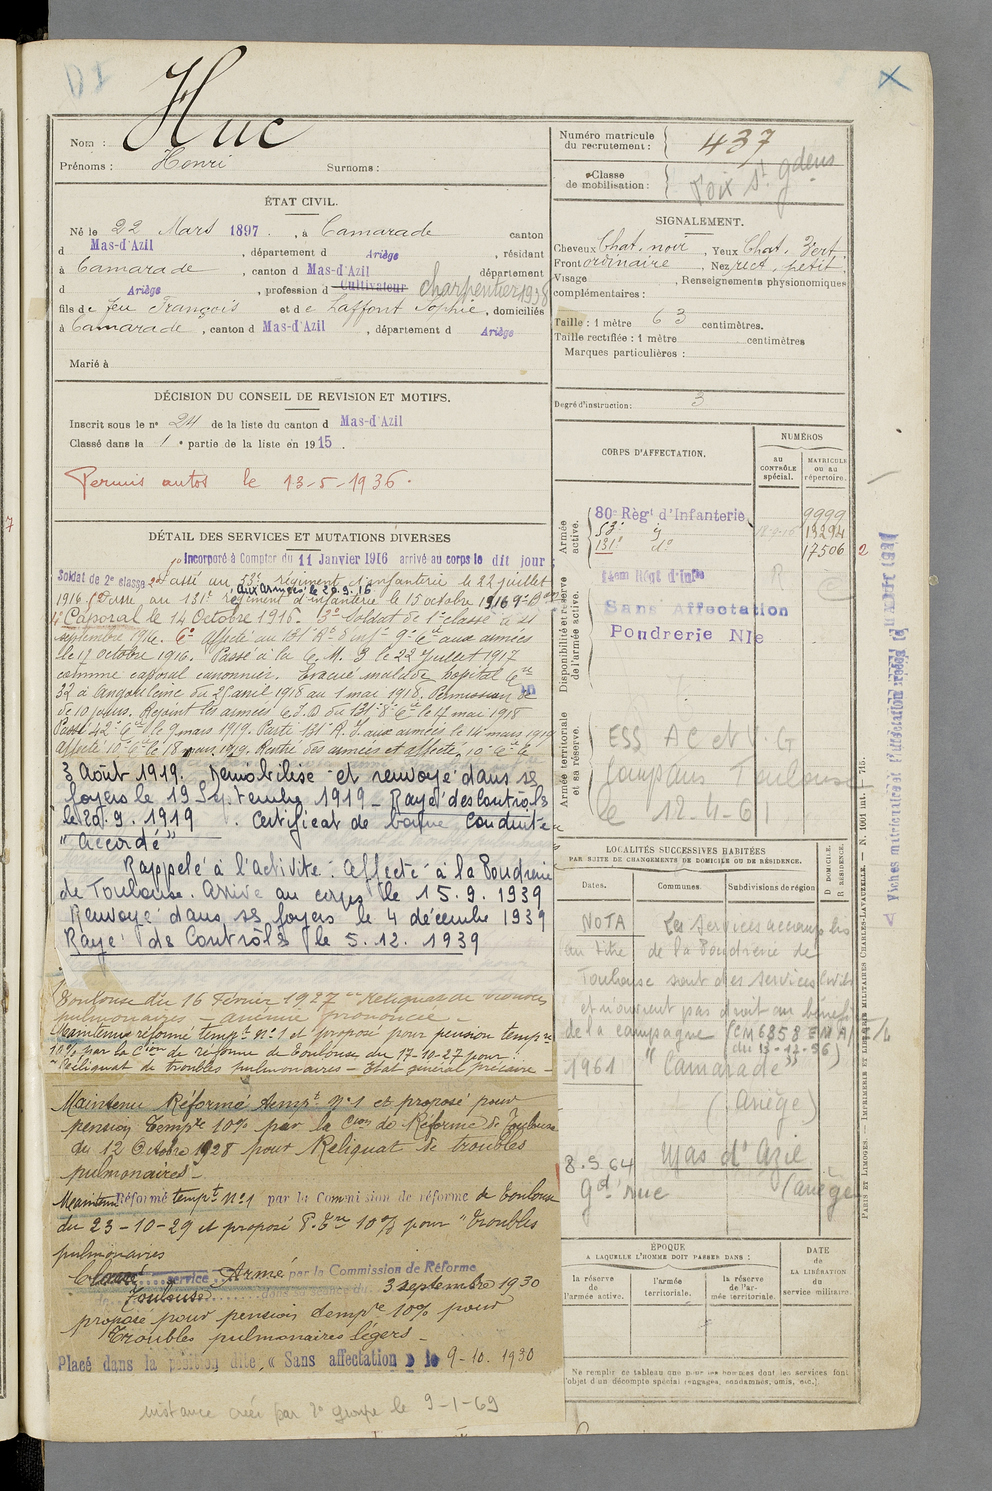 D1
X
Nom : Huc
Prénoms : Henri Surnoms :
ÉTAT CIVIL.
Né le 22 Mars 1897, à Camarade canton
d Mas-d'Azil, département d Ariège, résidant
à Camarade, canton d Mas-d'Azil département
d Ariège, profession d Cultivateur charpentier 1938
fils de feu François et de Laffont Sophie, domiciliés
à Camarade, canton d Mas-d'Azil, département d Ariège
Marié à
DÉCISION DU CONSEIL DE REVISION ET MOTIFS.
Inscrit sous le n° 24 de la liste du canton d Mas-d'Azil
Classé dans la 1e partie de la liste en 1915.
Permis autos le 13-5-1936.
DÉTAIL DES SERVICES ET MUTATIONS DIVERSES
Incorporé à Compter du 11 Janvier 1916 arrivé au corps le dit jour
Soldat de 2e classe 2° Passé au 53e régiment d'infanterie le 22 juillet
aux armées le 20.9.16
1916 Passé au 131e régiment d'infanterie le 15 octobre 1916 9e Bon
Caporal le 14 Octobre 1916. 5° Soldat de 1e classe le 21
septembre 1916. 6° affecté au 131 Rt d'infie 9e Cie aux armées
le 17 octobre 1916. Passé à la C. M. 3 le 22 Juillet 1917
comme caporal canonnier. Evacué malade hopital Cre
32 à Angoulême du 25 avril 1918 au 1 mai 1918. Permission
de 10 jours. Rejoint les armées C.I.D du 131e 8e Cie le 17 mai 1918
Passé 42e Cie le 9 mars 1919. Parti 131e R.I. aux armées le 14 mars 1919
affecté 10e Cie le 18 mars 1919. Rentré des armées et affecté 10e Cie le
3 Août 1919. Démobilisé et renvoyé dans ses
foyers le 19 Septembre 1919 - Rayé des Contrôles
le 20.9.1919. Certificat de bonne Conduite
" Accordé "
Rappelé à l'activité. Affecté à la Poudrerie
de Toulouse. Arrivé au corps le 15.9.1939
Renvoyé dans ses foyers le 4 décembre 1939
Rayé des Contrôles le 5.12.1939
Toulouse du 16 Février 1927 Reliquat de
pulmonaires - prononcée -
Maintenu réformé tempre n° 1 et proposé pour pension tempre
10% par la Cion de réforme de Toulouse du 17-10-27 pour :
" Reliquat de troubles pulmonaires - Etat général précaire -
Maintenu Réformé tempt n° 1 et proposé pour
pension tempre 10% par la Cion de Réforme de Toulouse
du 12 Octobre 1928 pour Reliquat de troubles
pulmonaires -
Maintenu Réformé tempt n° 1 par la Commission de réforme de Toulouse
du 23-10-29 et proposé P. Tre 10% pour " Troubles
pulmonaires
Classé service Armé par la Commission de Réforme
Toulouse dans sa séance du 3 septembre 1930
proposé pour pension tempre 10% pour
Troubles pulmonaires légers -
Placé dans la position dite « Sans affectation » le 9-10.1930
instance créée par 2e groupe le 9-1-69
Numéro matricule
du recrutement : 437
Classe
de mobilisation : Foix St gdens
SIGNALEMENT.
Cheveux Chat. noir, Yeux Chat. Vert
Front ordinaire, Nez rect. petit
Visage , Renseignements physionomiques
complémentaires :
Taille : 1 mètre 63 centimètres.
Taille rectifiée : 1 mètre centimètres
Marques particulières :
Degré d'instruction : 3
CORPS D'AFFECTATION.
NUMÉROS
AU CONTRÔLE spécial.
MATRICULE ou au répertoire.
Armée active.
80e Régt d'Infanterie 9999
53e 13294
131e d° 17506 2
Disponibilité et réserve de l'armée active.
Régt d'Infie R
Sans Affectation
Poudrerie Nle
Armée territoriale et sa réserve.
ESS AC et V.G
Compans Toulouse
le 12-4-61
LOCALITÉS SUCCESSIVES HABITÉES
PAR SUITE DE CHANGEMENTS DE DOMICILE OU DE RÉSIDENCE.
Dates. Communes. Subdivisions de région D. DOMICILE. R. RÉSIDENCE.
NOTA Les services accomplis
au titre de la Poudrerie de
Toulouse sont des services civils
et n'ouvrent pas droit au bénéfice
de la campagne (CM 6858 EMA/
du 13-12-56)
1961 " Camarade "
(Ariège)
8.5.64 Mas d'Azil
Gd rue (ariège)
ÉPOQUE
A LAQUELLE L'HOMME DOIT PASSER DANS :
la réserve de l'armée active.
l'armée territoriale.
la réserve de l'armée territoriale.
DATE DE LA LIBÉRATION du service militaire.
Ne remplir ce tableau que pour les hommes dont les services font
l'objet d'un décompte spécial (engagés, condamnés, omis, etc.).
PARIS ET LIMOGES. — IMPRIMERIE ET LIBRAIRIE MILITAIRES CHARLES-LAVAUZELLE. — N. 1001 int. — 715.